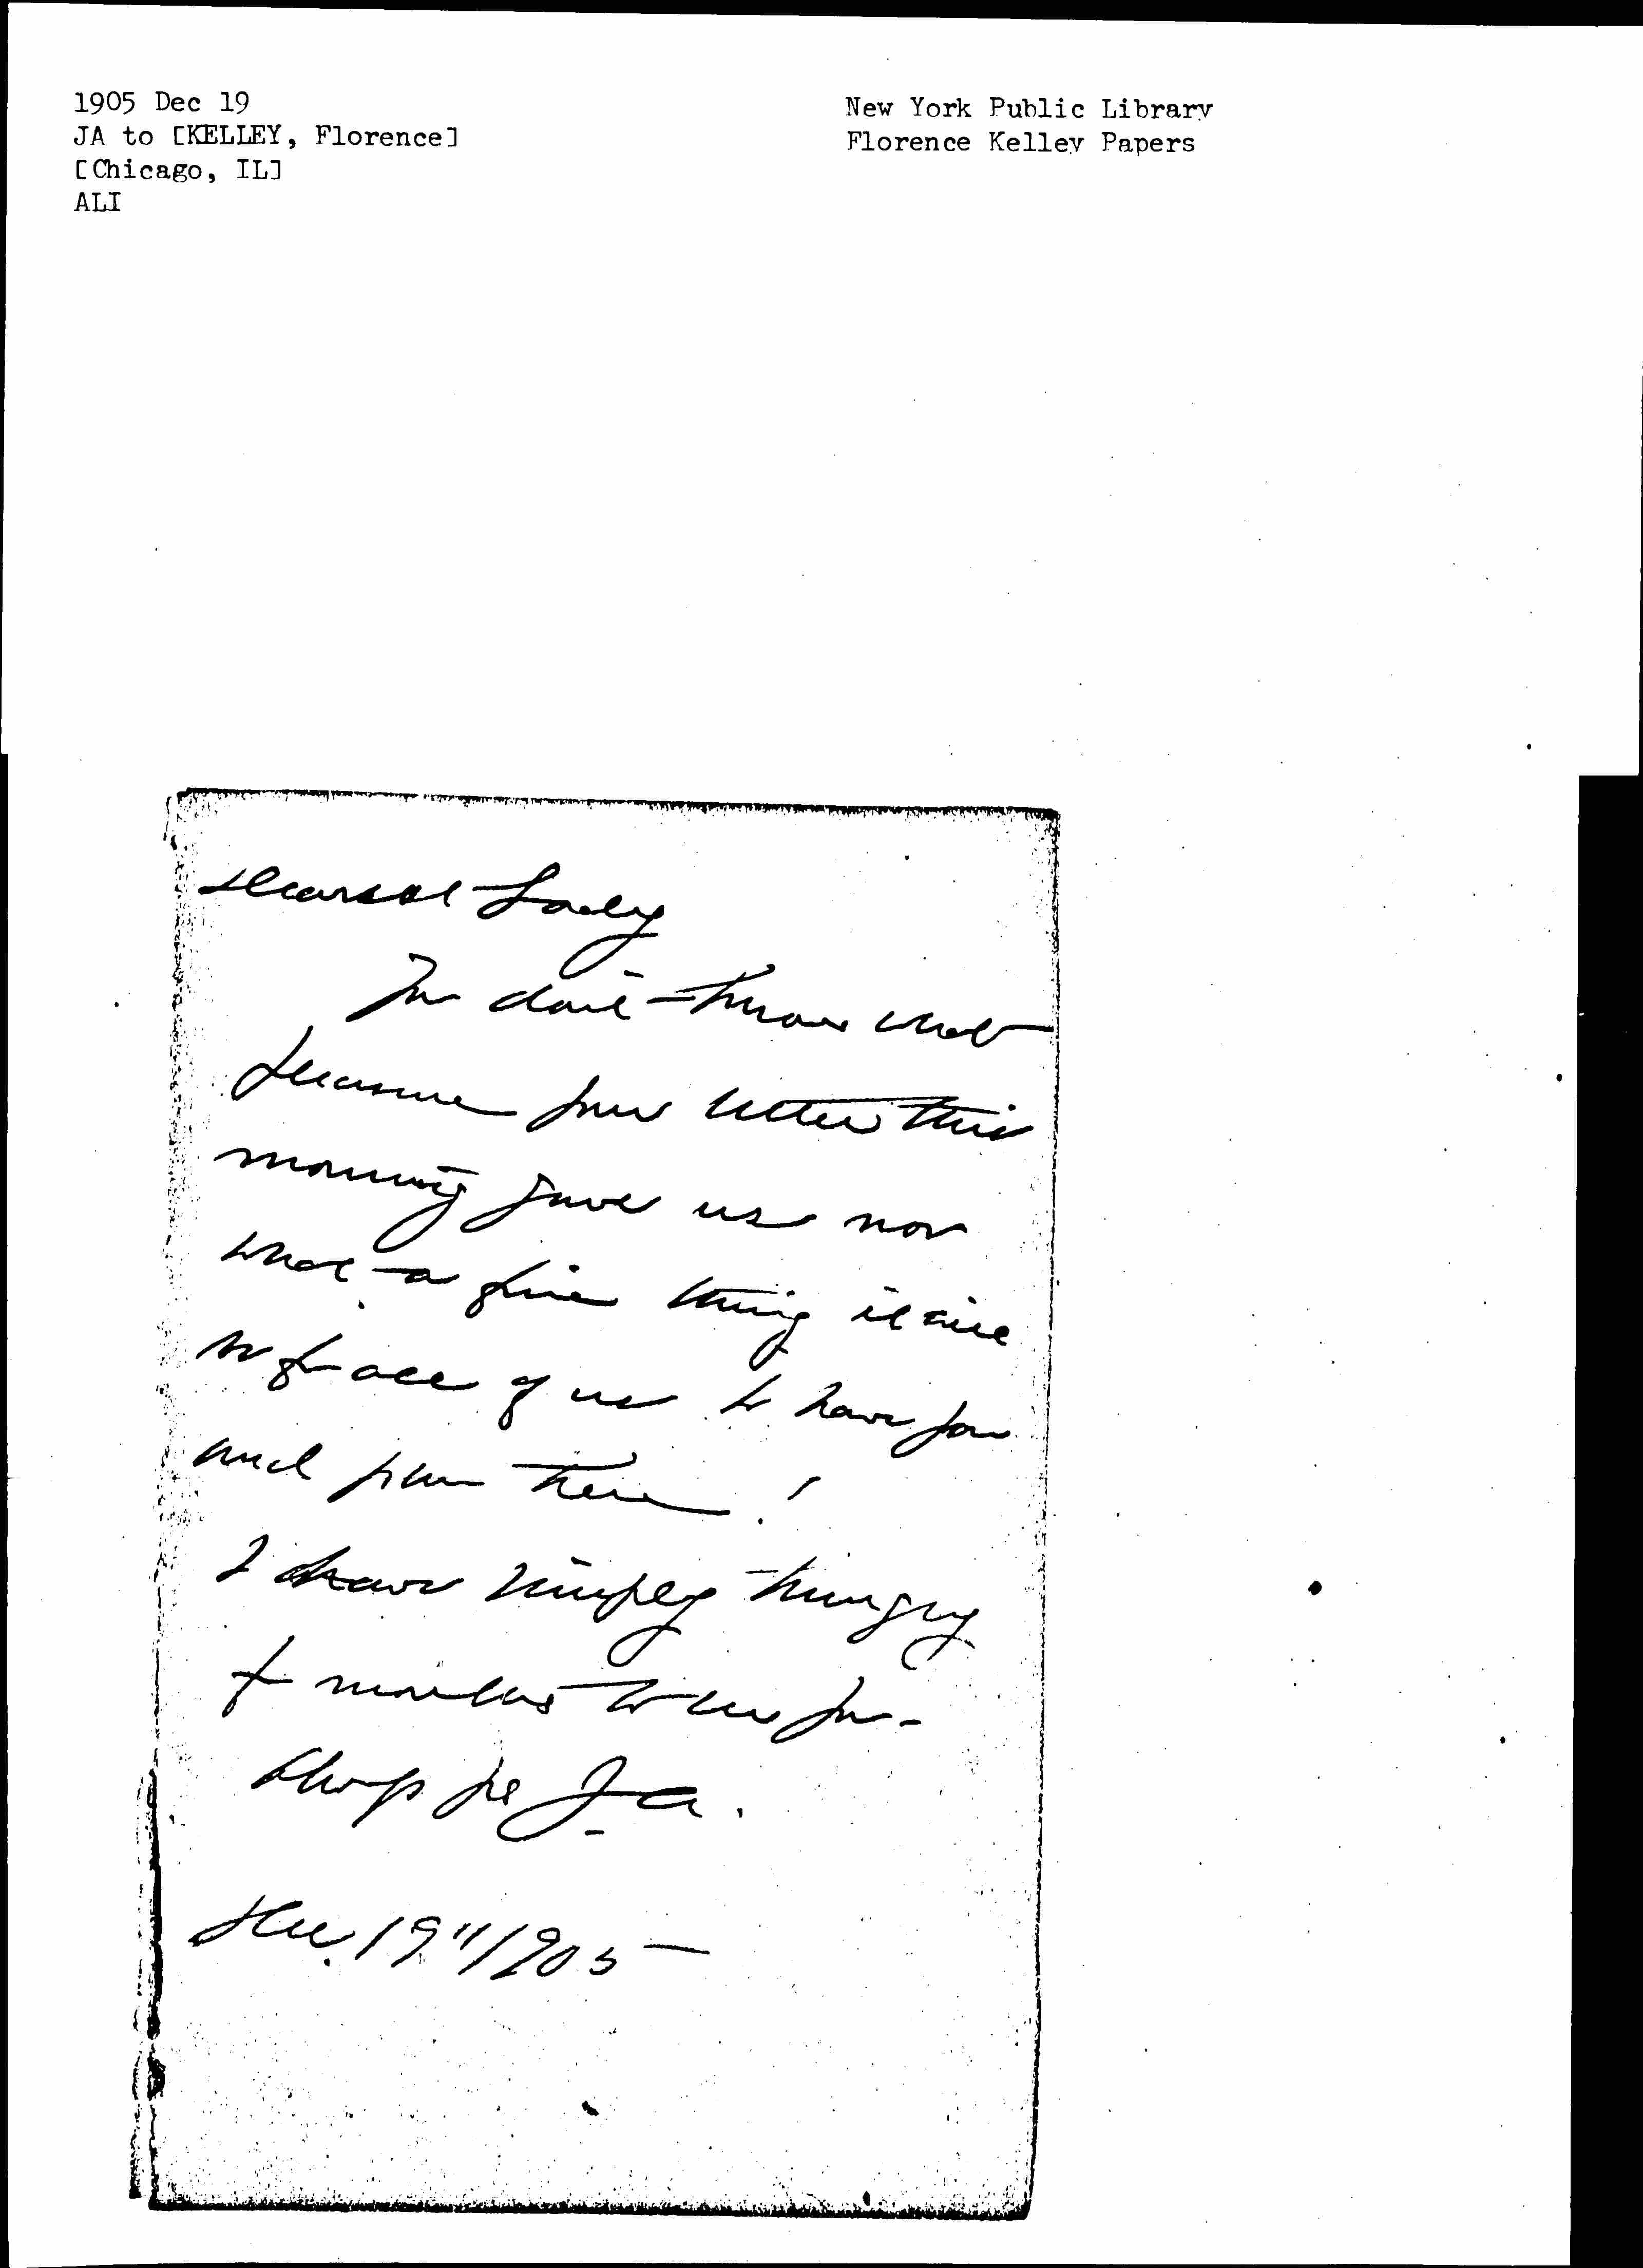 1905 Dec 19
JA to [KELLEY, Florence]
[Chicago, IL]
ALI
New York Public Library
Florence Kelley Papers
Dearest Lady
You don't know what
pleasure your letter this
morning gave us nor
what a fine thing it will
be for all of us to have you
and here!
I have simply hungry
for months to see you -
Always yrs J A.
Dec. 19" 1905 -